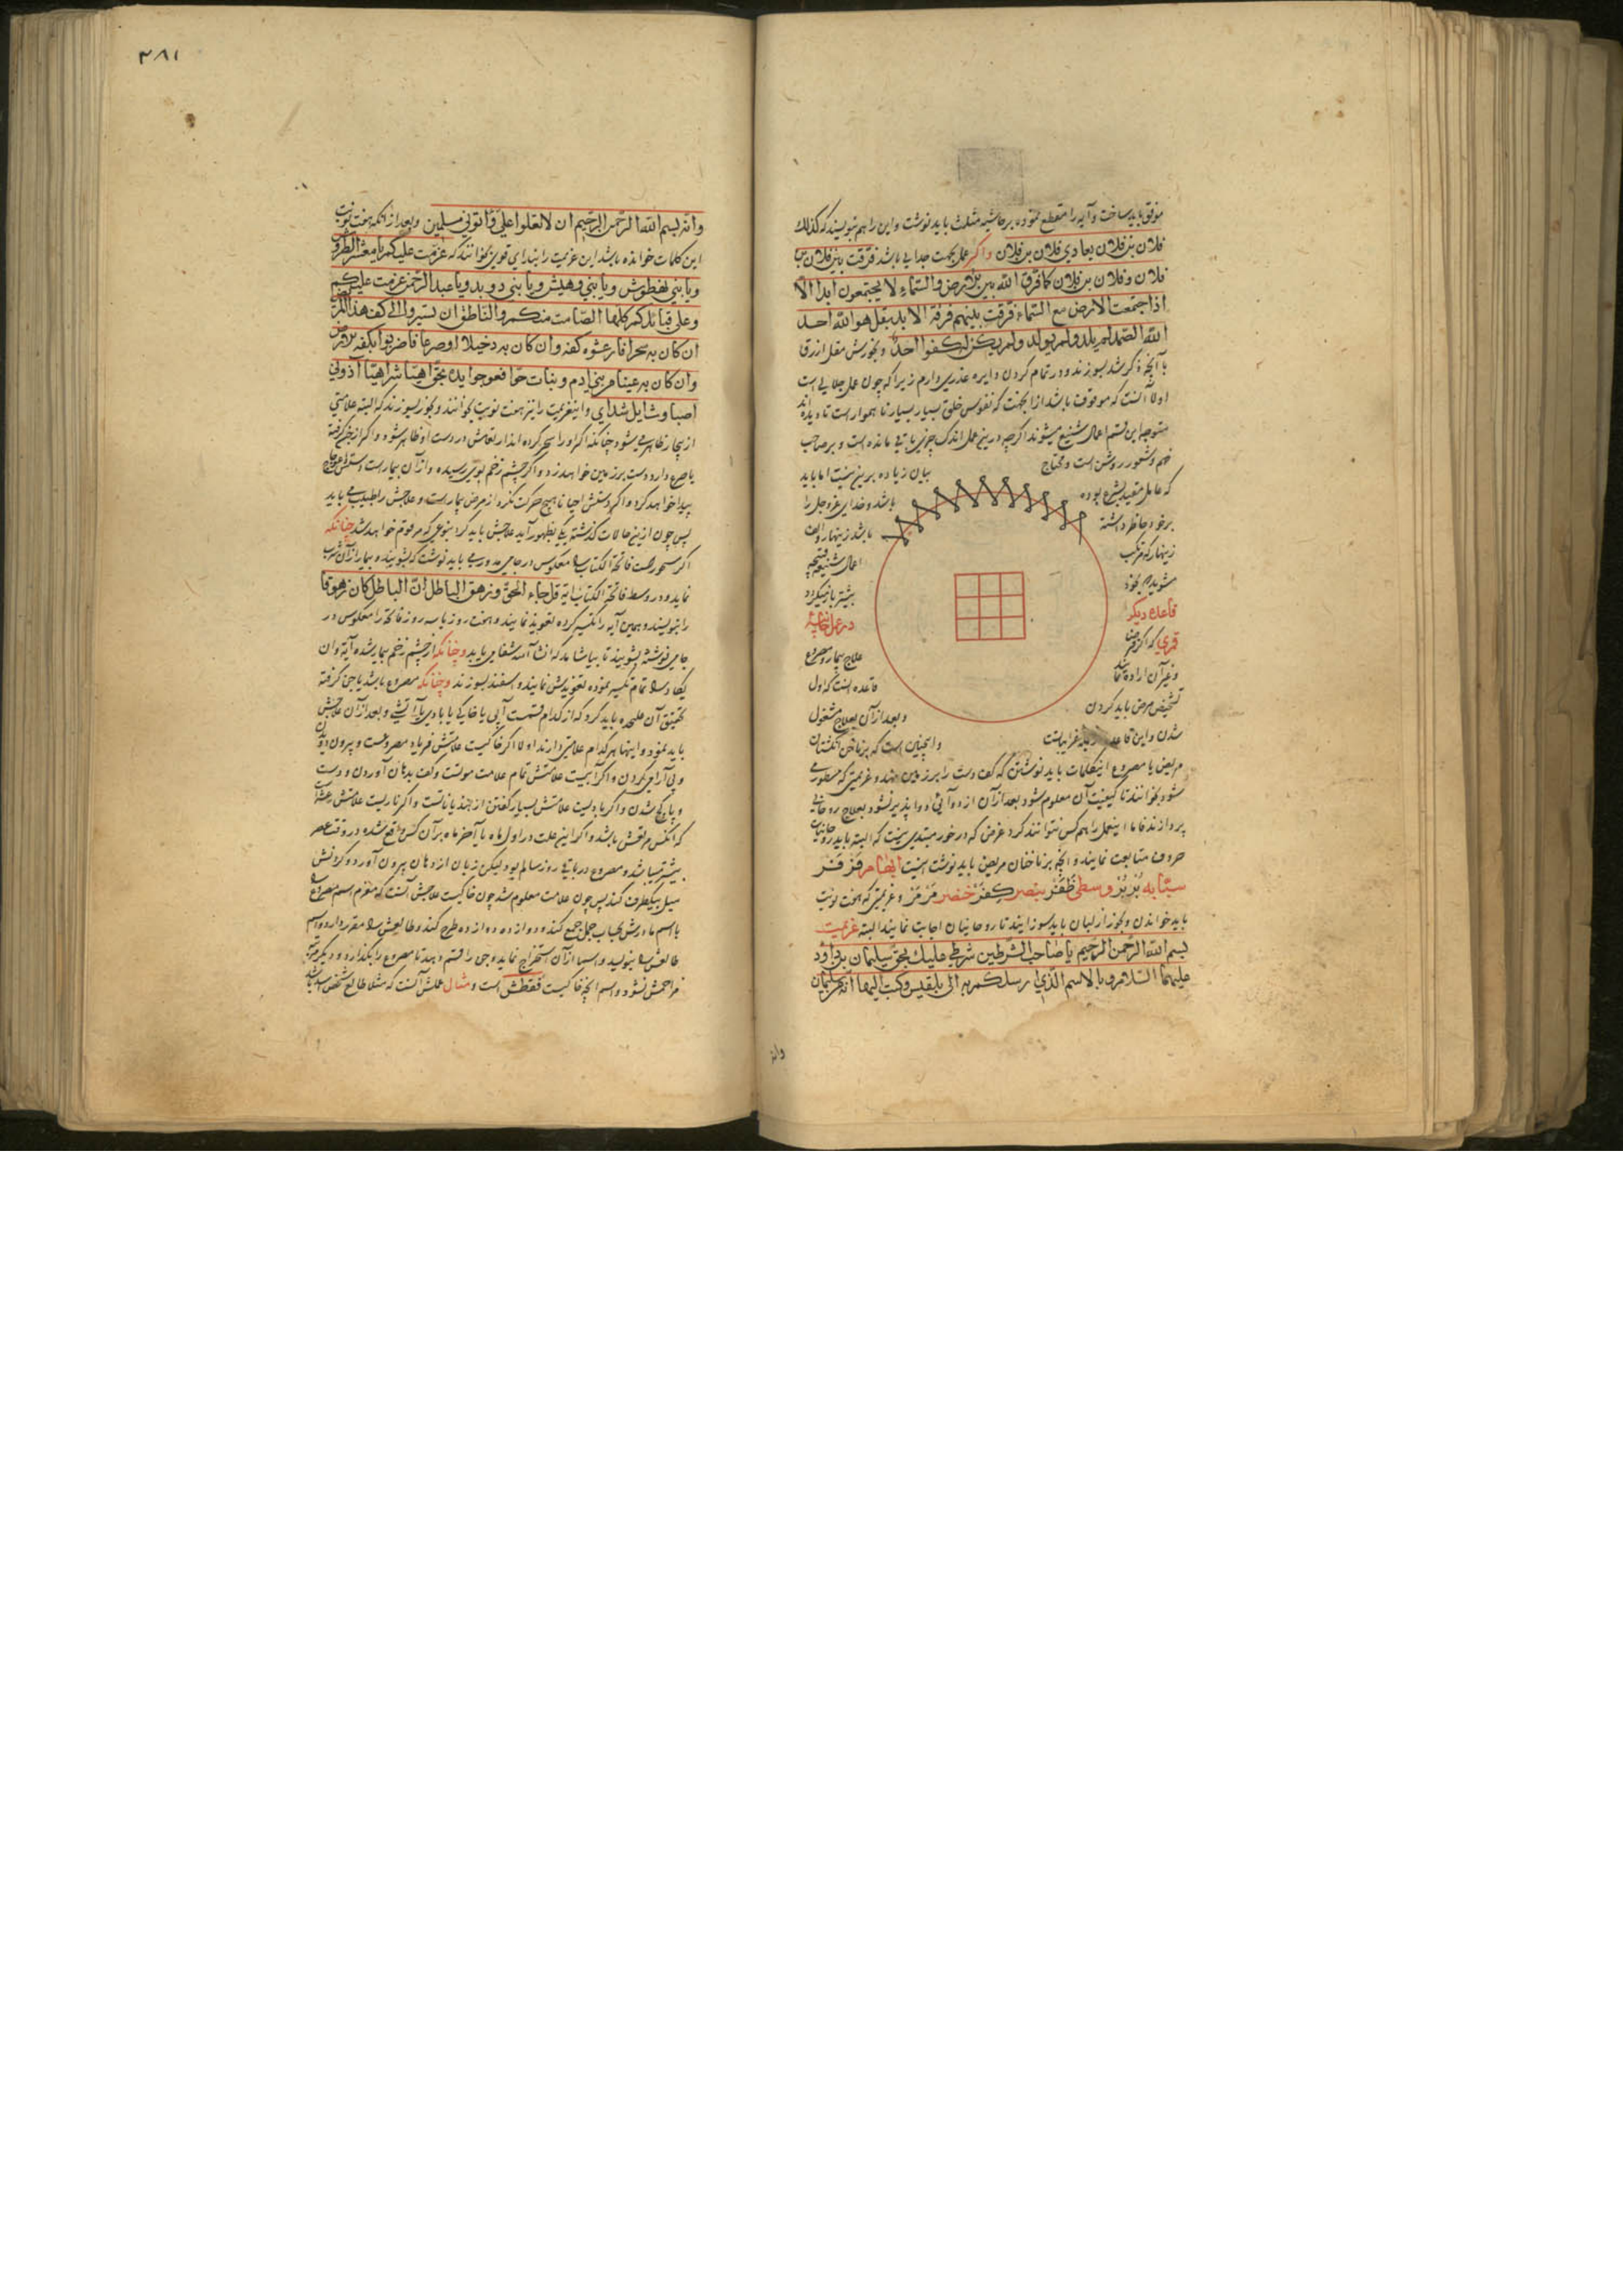 موفق باید ساخت و آیه را مقطع نموده بر حاشیه مثلث باید نوشت و این را هم بنویسند که کذلک
فلان بن فلان بعادی فلان بن فلان واکر عمل بجهت جدایی باشد فرقت بین فلان بن
فلان و فلان بن فلان کما فرق الله بین الارض والسماء لا یجتمعون ابدا الا
اذا جتمعت الارض مع السماء فرقت بینهم فرقة الابد بقل هو الله احد
الله الصمد لم یلد ولم یولد ولم یکن له کفوا احد و بخورش مقل ازرق
با آنچه ذکر شد بسوزند و در تمام کردن دایره عذری دارم زیرا که چون عمل جلالی است
اولا آنست که موقوف باشد از آنجهت که نفوس خلق بسیار بسیار ناهموار است تا دیده اند
متوجه این قسم اعمال شنیع میشوند اکرچه درین عمل اندک چیزی باقی مانده است و بر صاحب
فهم و شعور روشن است و محتاج
بیان زیاده برین نیست اما باید
که عامل مقید بشرع بوده
باشد و خدای عزوجل را
برخود حاظر داشته
باشد زنهار و الف
زینهار که مرتکب
اعمال شنیعه
قاعده دیکر
در عمل
قمری که اکر
علاج بیمار و مصروع
و غیر آن اراده نماید
قاعده آنست که اول
تشخیص مرض باید کردن
و بعد از آن بعلاج مشغول
شدن و این قاعده غرایبست
و اینچنین است که بر ناخن انکشتان
مریض یا مصروع این کلمات باید نوشتن که کف دست را بر زمین نهد و عزیمتی که مسطور می
شود بخوانند تا کیفیت آن معلوم شود بعد از آن از دوائی دوا پذیر نشود بعلاج روحانی
پردازند فاما اینعمل را همه کس نتوانند کرد غرض که در خور مبتدی نیست که البته باید روحانیان
حروف متابعت نمایند و آنچه بر ناخنان مریض باید نوشت اینست ابهام فز فز
سبابه بز بز وسطی ظفز بنصر کفز خنصر مز مز و عزیمتی که هفت نوبت
باید خواندن و بخور از لبان باید سوزانید تا روحانیان اجابت نمایند البته عزیمت
بسم الله الرحمن الرحیم یا صاحب الشرطین شرطی علیك بحق سلیمان بن داود
علیهما السلام و بالاسم الذی ارسلکم به الی بلقیس وکتب الیها انه من سلیمان
وانه
٣٨١
وانه بسم الله الرحمن الرحیم ان لا تعلوا علی واتونی مسلمین و بعد از آنکه هفت نوبت
این کلمات خوانده باشد این عزیمت را بندای قوی بخوانند که عزمت علیکم یا معشر
ویا بنی لفطوش ویا بنی وهیش ویا بنی دوبد ویا عبد الرحمن عزمت علیکم
وعلی قبائلکم کلها الصامت منکم والناطق ان تسیروا الی کف هذا
ان کان به سحرا فارعشوه کفه وان کان به دخیلا او صرعا فاضربوا بکفه الارض
وان کان به عینا من بنی ادم و بنات حوا فعوجوا یده بحق اهیا شراهیا آذونی
اصباوث ایل شدای و این عزیمت را نیز هفت نوبت بخوانند و بخور بسوزند که البته علامتی
از بیمار ظاهر میشود چنانکه اکر او را سحر کرده اند ارتعاش در دست او ظاهر شود و اکر از جن گرفته
یا صرع دارد دست بر زمین خواهد زد و اکر چشم زخم بوی رسیده و از آن بیمار است دستش اعوجاج
پیدا خواهد کرد و اکر دستش احیانا هیچ حرکت نکرد از مرض بیمار است و علاجش را طبیب می باید
پس چون ازین حالات کذشته یکی بظهور آید علاجش باید کرد بنوعی که مرقوم خواهد شد چنانکه
اکر مسحور است فاتحة الکتاب را معکوس در جامی مدور می باید نوشت که بشوینده بیمار از آن شرب
نماید و در وسط فاتحة الکتاب آیه قل جاء الحق وزهق الباطل ان الباطل کان زهوقا
را بنویسند و همین آیه را تکسیر کرده تعویذ نمایند و هفت روز یا سه روز فاتحه را معکوس در
جامی نوشته بشویند تا بیاشامد که انشا الله شفا می یابد و چنانکه از چشم زخم بیمار شده آیه وان
یکاد را تمام تکسیر نموده تعویذش نمایند و اسفند بسوزند و چنانکه مصروع باشد یا جن کرفته
تحقیق آن علیحده باید کرد که از کدام قسمت آبی یا خاکی یا بادی یا آتشی و بعد از آن علاجش
باید نمود و اینها هر کدام علامتی دارند اولا اکر خاکیست علامتش فریاد مصروعست و بیرون دویدن
و بی آرامی کردن و اکر آبیست علامتش تمام علامت موتست و کف بدهان آوردن و دست
و پا کج شدن و اکر بادیست علامتش بسیار کفتن از هذیاناتست و اکر ناریست علامتش رعشه است
که آنکس مرتعش باشد و اکر این علت در اول ماه یا آخر ماه بر آن کس واقع شده در وقت عصر
بیشتر میباشد و مصروع در باقی روز سالم بود لیکن زبان از دهان بیرون آورد و کردنش
میل بیکطرف کند پس چون علامت معلوم شد چون خاکیست علاجش آنست که معزم اسم مصروع را
با اسم مادرش بحساب جمل جمع کند و دوازده دوازده طرح کند و طالعش را مقرر دارد و اسم
طالعش را بنویسد و اسما از آن استخراج نماید و جن را قسم دهد تا مصروع را بکذارد و دیکر مرتبه
مزاحمش نشود و اسم آنچه خاکیست فقطش است و مثال عملش آنست که مثلا طالع شخص اسد باشد